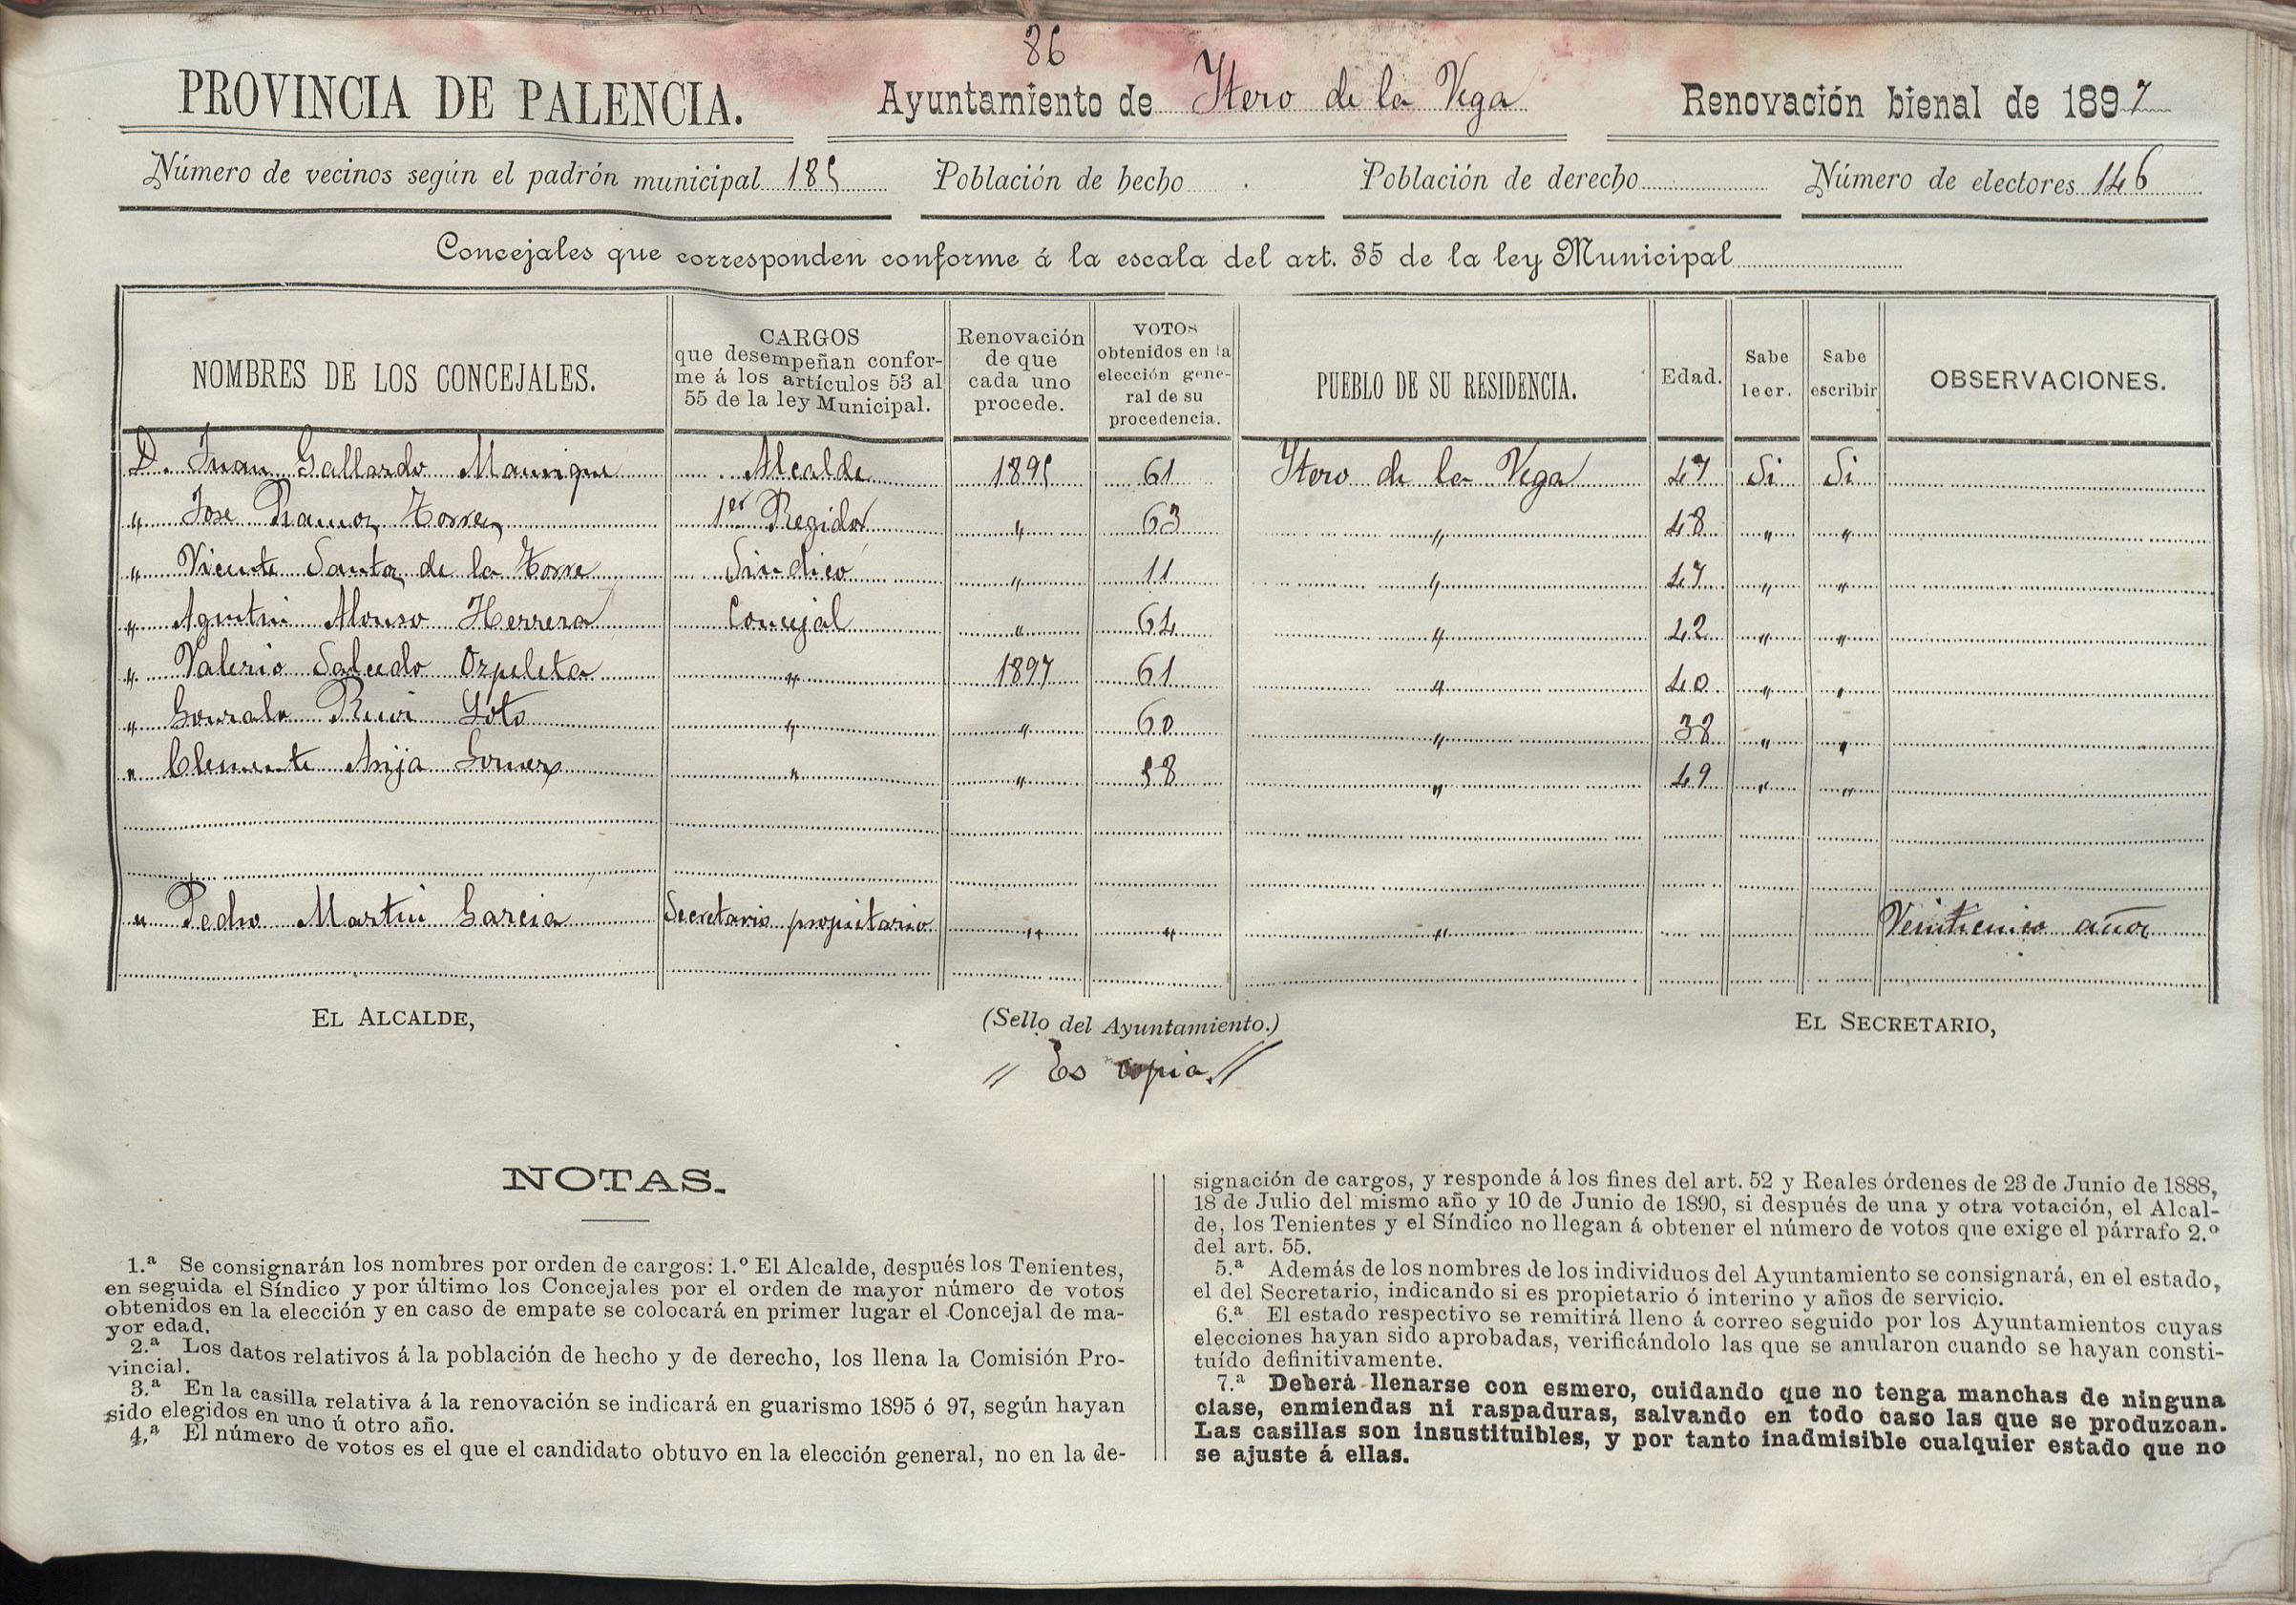 86
PROVINCIA DE PALENCIA. Ayuntamiento de Itero de la Vega Renovación bienal de 1897
Número de vecinos según el padrón municipal 185 Población de hecho Población de derecho Número de electores 146
Concejales que corresponden conforme á la escala del art. 35 de la ley Municipal
NOMBRES DE LOS CONCEJALES. CARGOS que desempeñan confor- me á los artículos 53 al 55 de la ley Municipal. Renovación de que cada uno procede. VOTOS obtenidos en la elección gene- ral de su procedencia. PUEBLO DE SU RESIDENCIA. Edad. Sabe leer. Sabe escribir OBSERVACIONES.
D. Juan Gallardo Manrique Alcalde 1895 61 Itero de la Vega 47 Si Si
" Jose Ramos Torres 1er Regidor " 63 " 48 " "
" Vicente Santos de la Torre Sindico " 11 " 47 " "
" Agustin Alonso Herrera Concejal " 64 " 42 " "
" Valerio Salcedo Ozpeleta " 1897 61 " 40 " "
" Gonzalo Soto " " 60 " 38 " "
" Clemente Arija Gomez " " 58 " 49 " "
" Pedro Martin Garcia Secretario propietario " " " Veinticinco años
EL ALCALDE, (Sello del Ayuntamiento.) EL SECRETARIO,
" Es copia. "
NOTAS.
1.ª Se consignarán los nombres por orden de cargos: 1.º El Alcalde, después los Tenientes,
en seguida el Síndico y por último los Concejales por el orden de mayor número de votos
obtenidos en la elección y en caso de empate se colocará en primer lugar el Concejal de ma-
yor edad.
2.ª Los datos relativos á la población de hecho y de derecho, los llena la Comisión Pro-
vincial.
3.ª En la casilla relativa á la renovación se indicará en guarismo 1895 ó 97, según hayan
sido elegidos en uno ú otro año.
4.ª El número de votos es el que el candidato obtuvo en la elección general, no en la de-
signación de cargos, y responde á los fines del art. 52 y Reales órdenes de 23 de Junio de 1888,
18 de Julio del mismo año y 10 de Junio de 1890, si después de una y otra votación, el Alcal-
de, los Tenientes y el Síndico no llegan á obtener el número de votos que exige el párrafo 2.º
del art. 55.
5.ª Además de los nombres de los individuos del Ayuntamiento se consignará, en el estado,
el del Secretario, indicando si es propietario ó interino y años de servicio.
6.ª El estado respectivo se remitirá lleno á correo seguido por los Ayuntamientos cuyas
elecciones hayan sido aprobadas, verificándolo las que se anularon cuando se hayan consti-
tuído definitivamente.
7.ª Deberá llenarse con esmero, cuidando que no tenga manchas de ninguna
clase, enmiendas ni raspaduras, salvando en todo caso las que se produzcan.
Las casillas son insustituibles, y por tanto inadmisible cualquier estado que no
se ajuste á ellas.